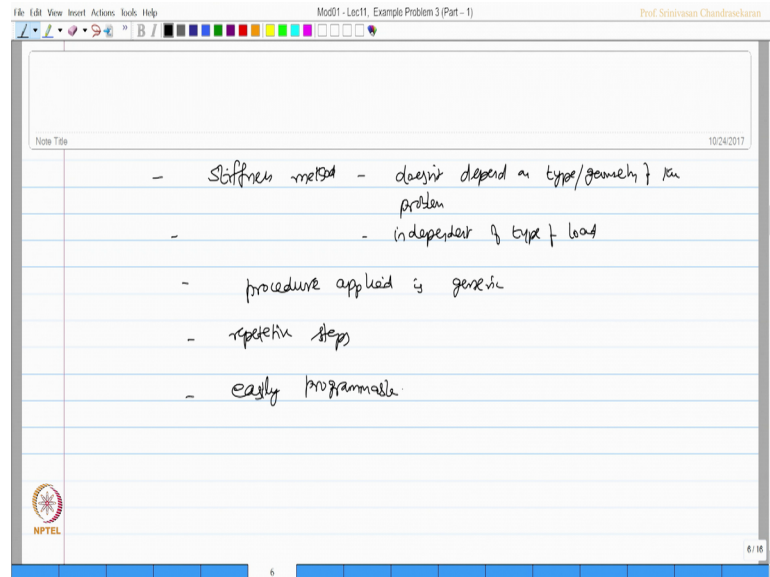 File Edit View Insert Actions Tools Help
Mod01 - Lec11, Example Problem 3 (Part – 1)
Prof. Srinivasan Chandrasekaran
B I
Note Title
10/24/2017
- Stiffness method - doesn't depend on type/geometry of the
problem
- - independent of type of load
- procedure applied is generic
- repetetive steps
- easily programmable.
NPTEL
6 / 16
6